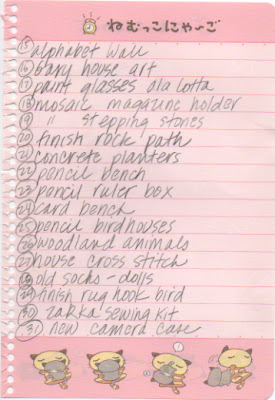 ねむっこにゃ〜ご
15 alphabet wall
16 Gary house art
17 paint glasses ala lotta
18 mosaic magazine holder
19 " stepping stones
20 finish rock path
21 concrete planters
22 pencil bench
23 pencil ruler box
24 card bench
25 pencil birdhouses
26 woodland animals
27 house cross stitch
28 old socks - dolls
29 finish rug hook bird
30 zakka sewing kit
31 new camera case